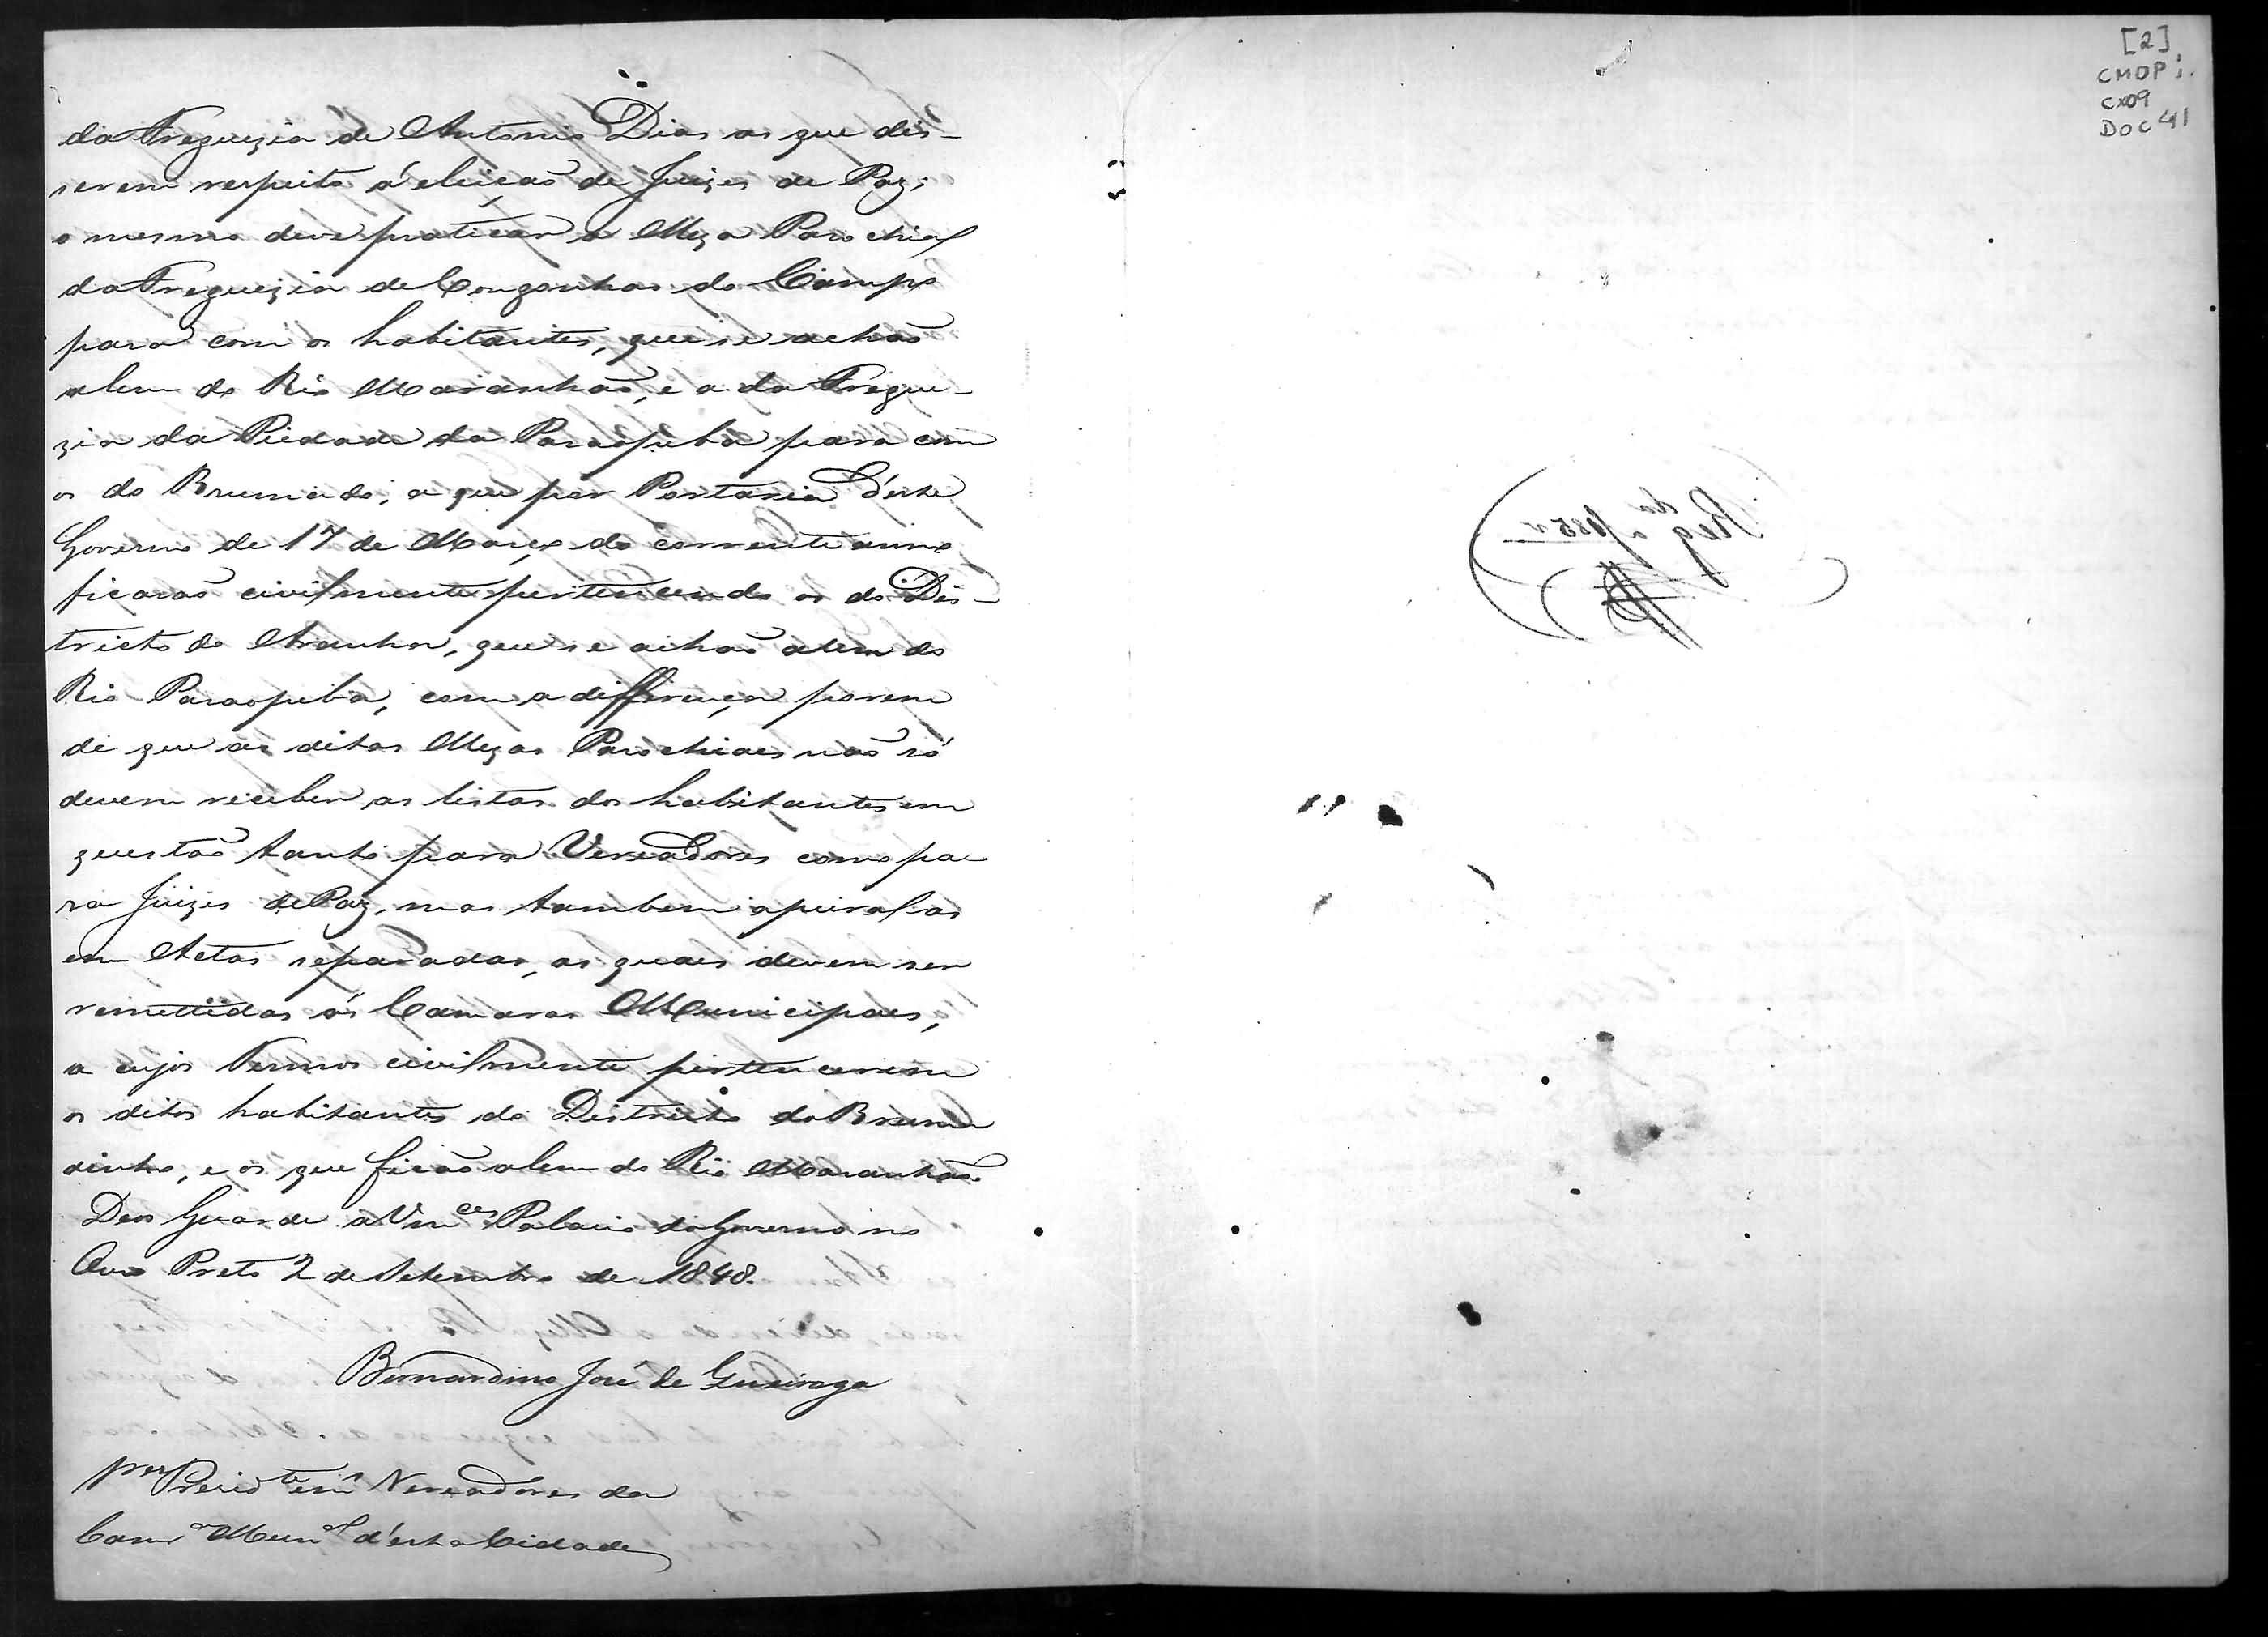 da Freguezia de Antonio Dias as que dis-
serem respeito á eleição de Juizes de Paz;
o mesmo deve praticar a Meza Parochial
da Freguezia de Congonhas do Campo
para com os habitantes, que se achão
alem do Rio Maranhão, e a da Fregue-
zia da Piedade da Paraopeba para com
os do Brumado, a que por Portaria d'este
Governo de 17 de Março do corrente anno
ficarão civilmente pertencendo os do Dis-
tricto do Aranha, que se achão alem do
Rio Paraopeba, com a differença porem
de que as ditas Mezas Parochiaes não só
devem receber as listas dos habitantes em
questão tanto para Vereadores como pa-
ra Juizes de Paz, mas tambem apural-as
em Actas separadas, as quaes devem ser
remettidas ás Camaras Municipaes,
a cujos Termos civilmente pertencerem
os ditos habitantes do Districto do Bruma
dinho, e os que ficão alem do Rio Maranhão.
Deos Guarde a Vmces Palacio do Governo no
Ouro Preto 2 de Setembro de 1848.
Bernardino José de Queiroga
Snres Presidte e mais Vereadores da
Camra Munal d'esta Cidade
[2]
CMOP
CX09
DOC 41